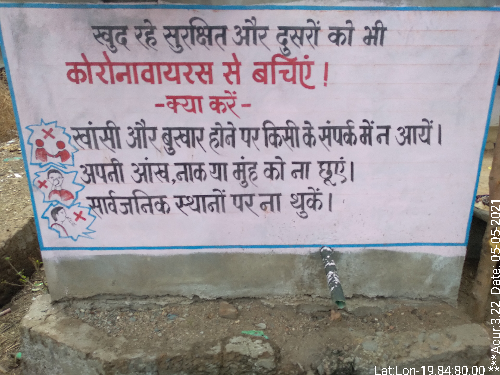 खुद रहे सुरक्षित और दुसरों को भी
कोरोनावायरस से बचिएं!
-क्या करें-
खांसी और बुखार होने पर किसी के संपर्क में न आयें।
अपनी आंख,नाक या मुंह को ना छूएं।
सार्वजनिक स्थानों पर ना थुकें।
Lat:Lon-19.84:80.00
***Acur:3.22 Date: 05-05-2021